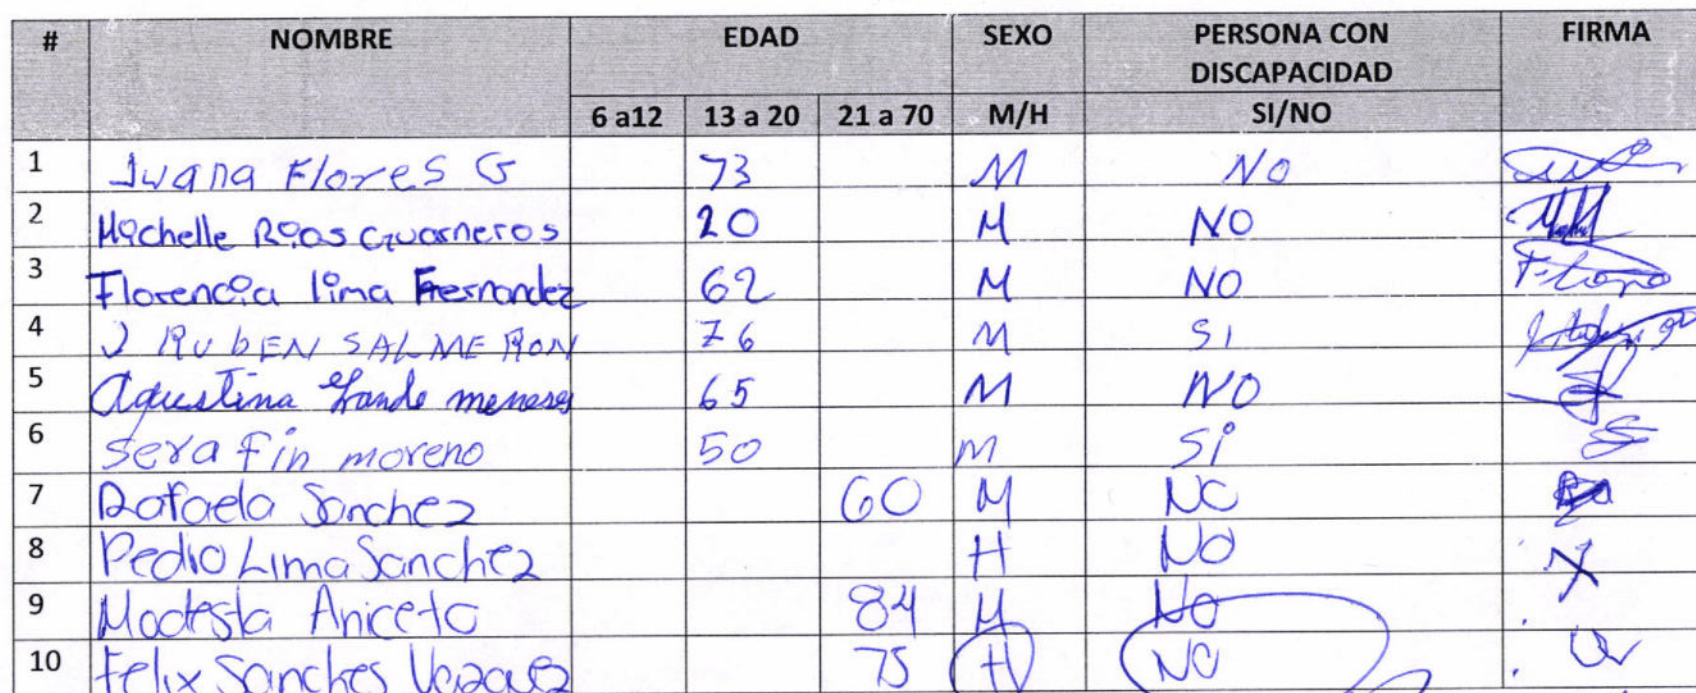 # NOMBRE EDAD SEXO PERSONA CON DISCAPACIDAD FIRMA
6 a12 13 a 20 21 a 70 M/H SI/NO
1 Juana Flores G 73 M NO
2 Michelle Rojas Guarneros 20 M NO
3 Florencia lima Fernandez 62 M NO
4 J RUbEN SALMERON 76 M SI
5 Agustina Grande meneses 65 M NO
6 Serafin moreno 50 M Si
7 Rafaela Sanchez 60 M NO
8 Pedro Lima Sanchez H NO
9 Modesta Aniceto 84 M No
10 Felix Sanches Vazquez 75 H NO